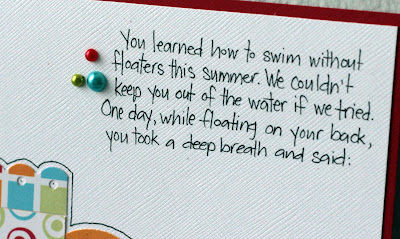 You learned how to swim without
floaters this summer. We couldn't
keep you out of the water if we tried.
One day, while floating on your back,
you took a deep breath and said: